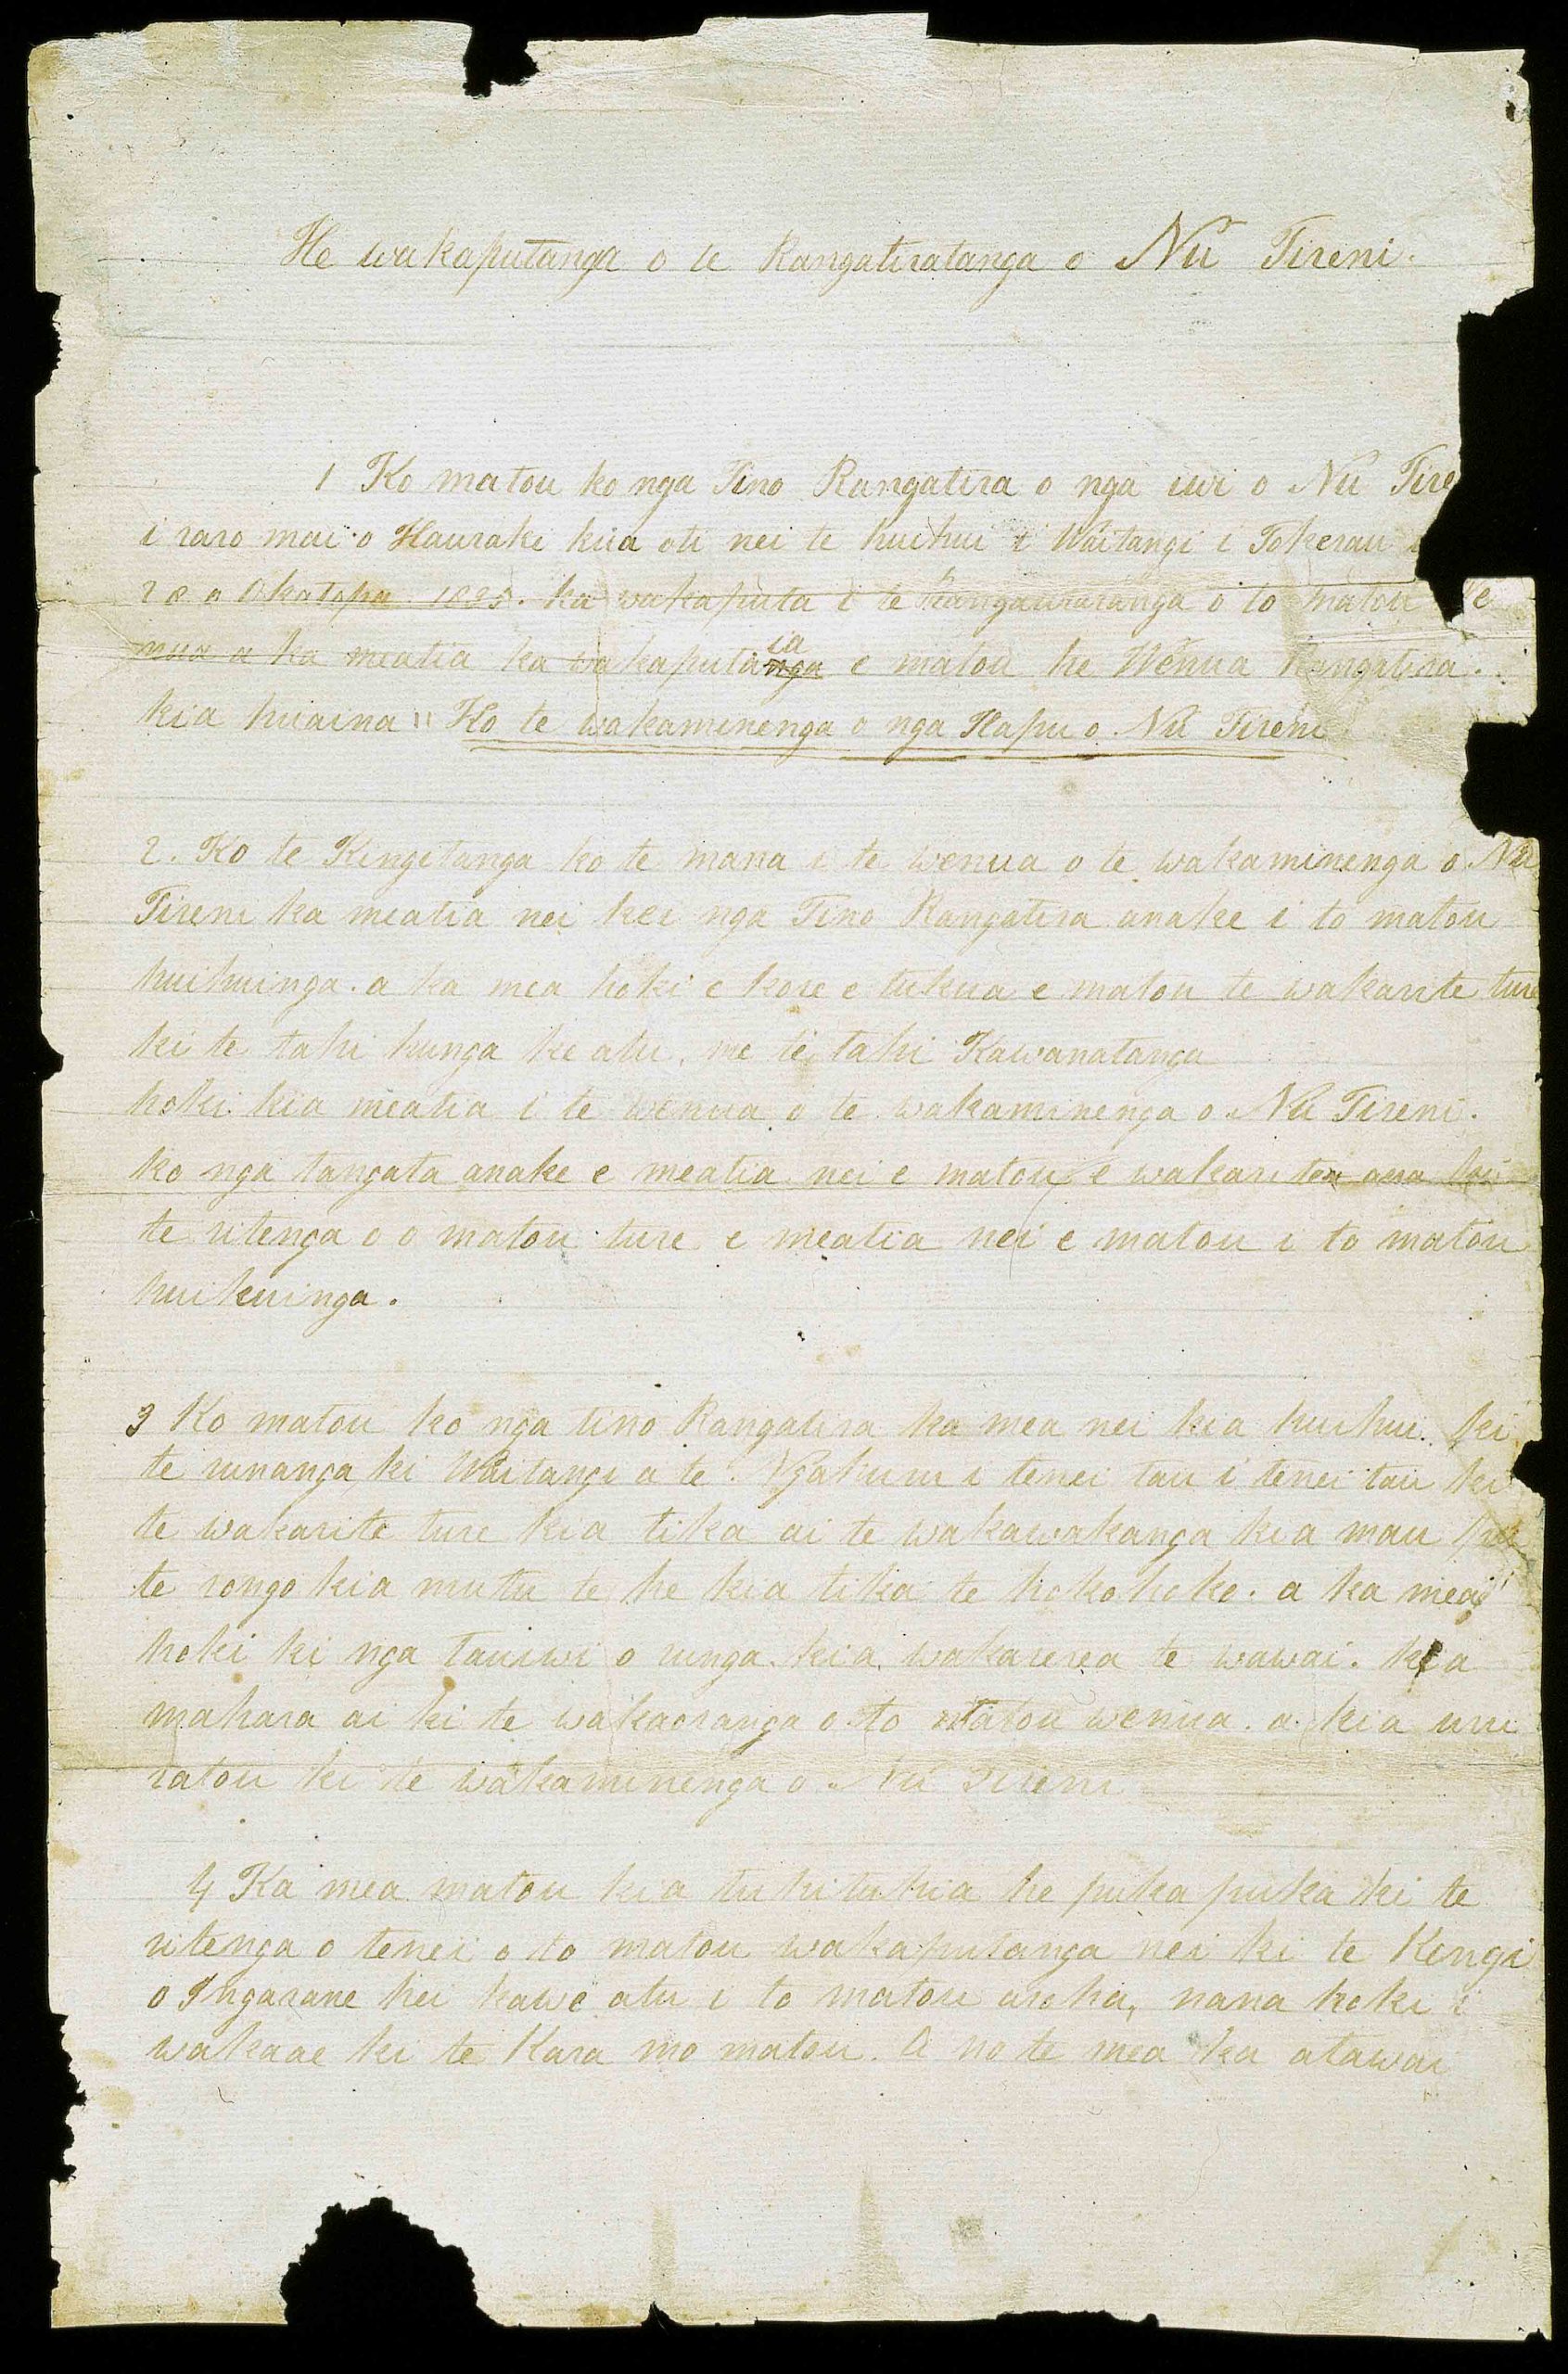 He wakaputanga o te Rangatiratanga o Nu Tireni.
1 Ko matou ko nga Tino Rangatira o nga iwi o Nu Tire
i raro mai o Hauraki kua oti nei te huihui i Waitangi i Tokerau
28 o Okatopa 1835. ka wakaputa i te Rangatiratanga o to matou We
nua a ka meatia ka wakaputanga ia e matou he Wenua Rangatira.
kia huaina "Ko te wakaminenga o nga Hapu o Nu Tireni
2. Ko te Kingitanga ko te mana i te wenua o te wakaminenga o Nu
Tireni ka meatia nei kei nga Tino Rangatira anake i to matou
huihuinga. a ka mea hoki e kore e tukua e matou te wakarite ture
ki te tahi hunga ke atu, me te tahi Kawanatanga
hoki kia meatia i te wenua o te wakaminenga o Nu Tireni.
ko nga tangata anake e meatia nei e matou e wakarite ana ki
te ritenga o o matou ture e meatia nei e matou i to matou
huihuinga.
3 Ko matou ko nga tino Rangatira ka mea nei kia huihui ki
te runanga ki Waitangi a te Ngahuru i tenei tau i tenei tau ki
te wakarite ture kia tika ai te wakawakanga kia mau pu
te rongo kia mutu te he kia tika te hokohoko. a ka mea
hoki ki nga Tauiwi o runga. kia wakarerea te wawai. kia
mahara ai ki te wakaoranga o to matou wenua. a kia uru
ratou ki te wakaminenga o Nu Tireni
4 Ka mea matou kia tuhituhia he pukapuka ki te
ritenga o tenei o to matou wakaputanga nei ki te Kingi
o Ingarane hei kawe atu i to matou aroha, nana hoki i
wakaae ki te Kara mo matou. A no te mea ka atawai